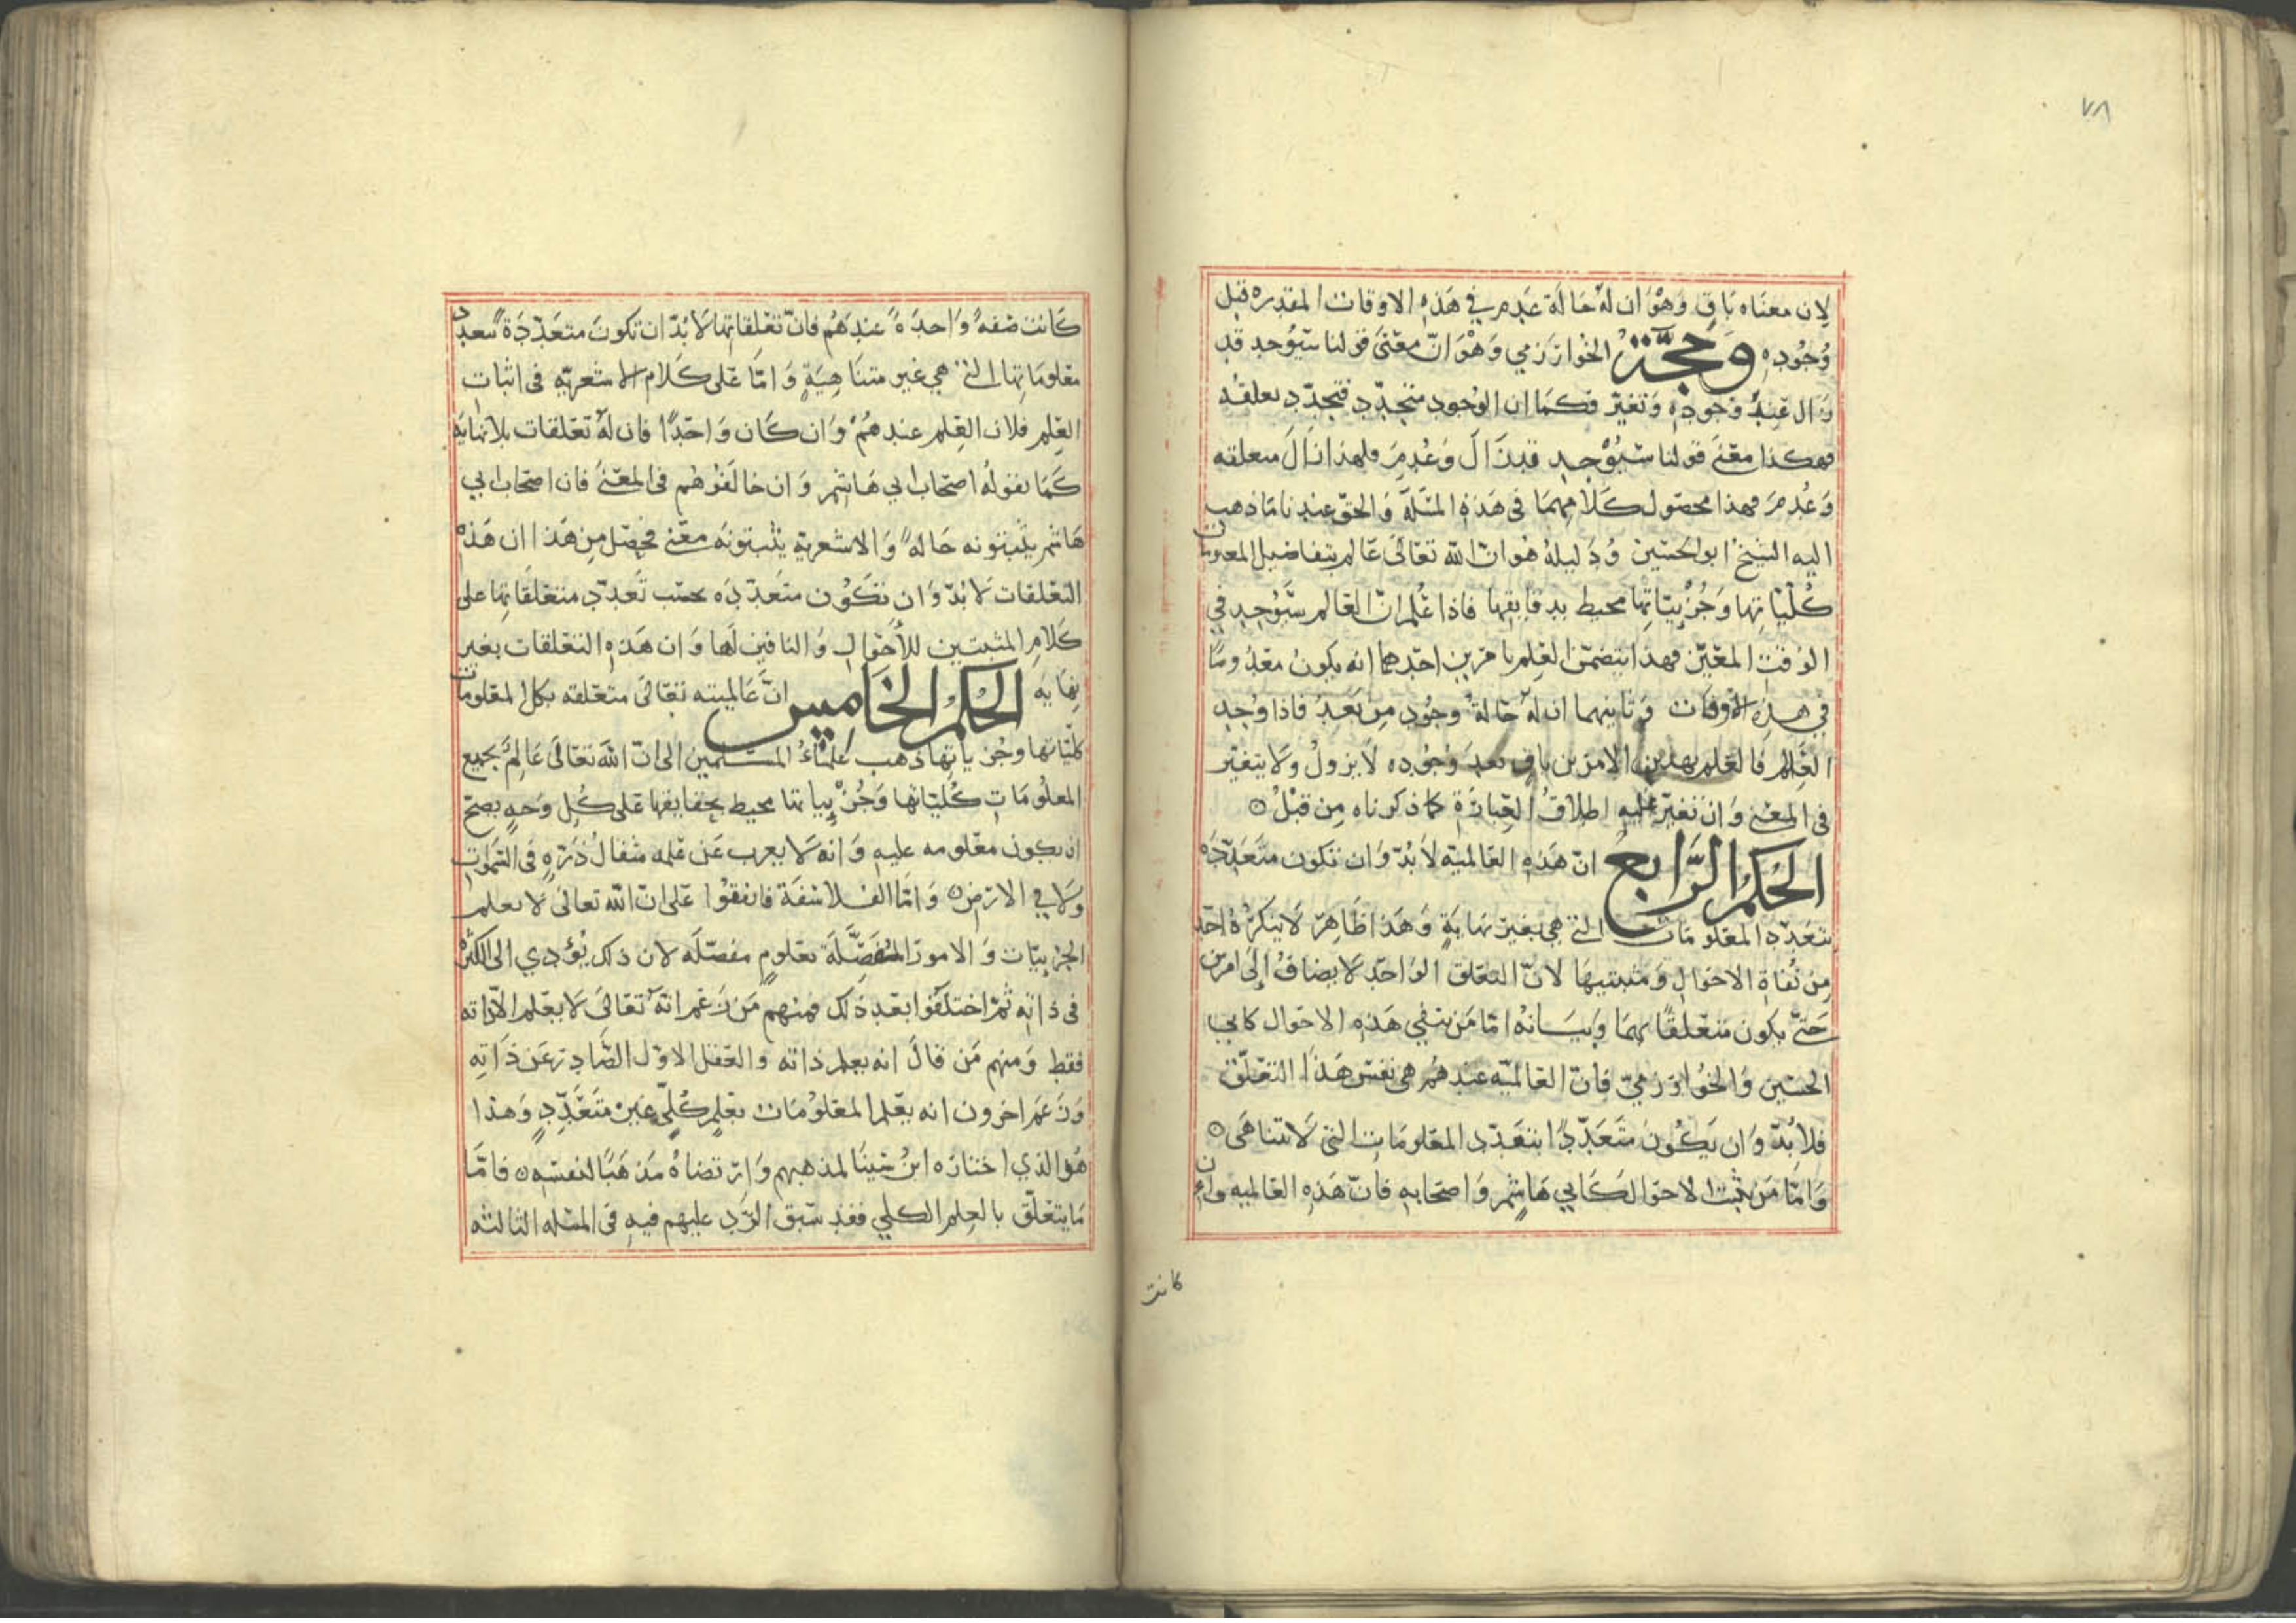 ٧٨
لان معناه باقٍ وهو ان له حالة عدم في هذه الاوقات المقدره قبل
وجوده وحجّة الخوارزمي وهو انّ معنى قولنا سيوجد قد
زال عند وجوده وتغيّر فكما ان الوجود متجدّد فتجدّد تعلقه
فهكذا معنى قولنا سيوجد قد زال وعُدم فلهذا زال متعلقه
وعُدم فهذا محصول كلامهما في هذه المسئلة والحق عندنا ما ذهب
اليه الشيخ ابو الحسين ودليله هو ان الله تعالى عالم بتفاضيل المعلومات
كُلّيّاتها وجُزئيّاتها محيط بدقايقها فاذا عُلم انّ العالم سيُوجد في
الوقت المعيّن فهذا يتضمّن العلم بامرين احدهما انه يكون معدوما
في هذه الاوقات وثانيهما ان له حالة وجود من بعد فاذا وُجد
العالم فالعلم بهذين الامرين باقٍ بعد وجوده لا يزول ولا يتغيّر
في المعنى وان تغيّر عليه اطلاق العبارة كما ذكرناه من قبل ۞
الحكم الرّابع انّ هذه العالمية لا بُدّ وان تكون متعدّده
بتعدّد المعلومات التي هي بغير نهاية وهذا ظاهر لا ينكره احد
من نُفاة الاحوال ومثبتيها لانّ التعلق الواحد لا يضاف إلى امرين
حتى يكون متعلقًا بهما وبيانه امّا من ينفي هذه الاحوال كابي
الحسين والخوارزميّ فانّ العالميّه عندهم هي نفس هذا التعلّق
فلا بُدّ وان يكون متعدّدًا بتعدّد المعلومات التي لا تتناهى ۞
وامّا من يثبت الاحوال كابي هاشم واصحابه فانّ هذه العالميه وان
كانت
كانت صفةً واحدةً عندهم فانّ تعلقاتها لا بُدّ ان تكون متعدّدةً بتعدد
معلوماتها التي هي غير متناهيةٍ وامّا على كلام الاشعريّه في اثبات
العلم فلان العلم عندهم وان كان واحدًا فان له تعلقات بلا نهاية
كما يقوله اصحاب ابي هاشم وان خالفوهم في المعنى فان اصحاب ابي
هاشم يثبتونه حالةً والاشعرية يثبتونه معنى فحصل من هذا ان هذه
التعلقات لا بُدّ وان تكون متعدّده بحسب تعدّد متعلقاتها على
كلام المثبتين للأحوال والنافين لها وان هذه التعلقات بغير
نهايه الحكم الخامس انّ عالميته تعالى متعلقه بكل المعلومات
كليّاتها وجزياتها ذهب علماء المسلمين الى انّ الله تعالى عالمٌ بجميع
المعلومات كُلياتها وجُزئياتها محيط بحقايقها على كُل وجهٍ يصحّ
ان يكون معلومه عليه وانه لا يعزب عن علمه مثقال ذرّةٍ في السّموات
ولا في الارض ۞ وامّا الفلاسفة فاتفقوا على ان الله تعالى لا يعلم
الجزييّات والامور المفصّلة بعلومٍ مفصّله لان ذلك يُؤدي الى الكثرة
في ذاته ثمّ اختلفوا بعد ذلك فمنهم من زعم انّه تعالى لا يعلم الّا ذاته
فقط ومنهم من قال انه يعلم ذاته والعقل الاوّل الصّادر عن ذاته
وزعم اخرون انه يعلم المعلومات بعلمٍ كُلّيٍ غير متعدّدٍ وهذا
هُو الذي اختاره ابن سينا لمذهبهم وارتضاهُ مذهبًا لنفسه ۞ فامّا
ما يتعلّق بالعلم الكلي فقد سبق الرّد عليهم فيه في المسئله الثالثه